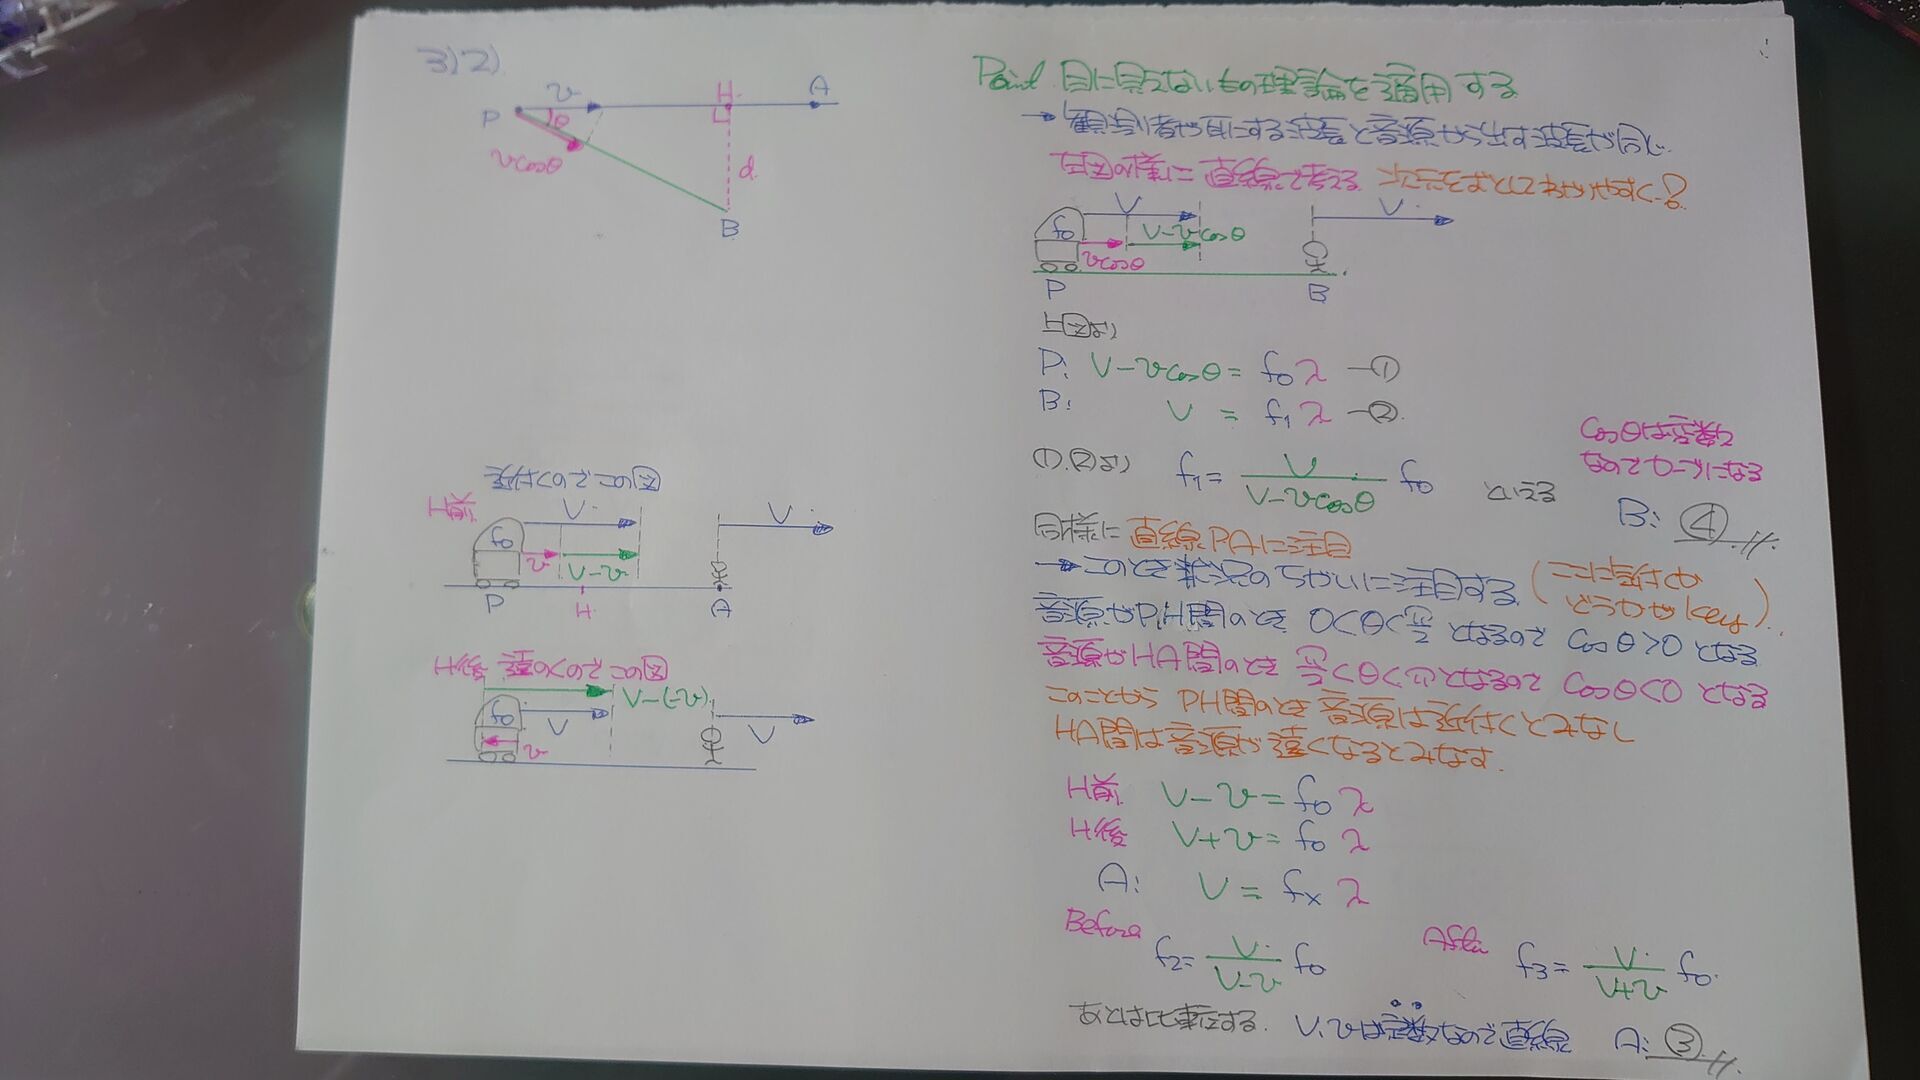 3)2)
v
H
A
P
θ
vcosθ
d
B
Point 目に見えないもの理論を適用する
→ 観測者が耳にする波長と音源から出す波長が同じ
右図の様に直線で考える 次元をおとしてわかりやすく!
V
V
f₀
V-vcosθ
vcosθ
P
B
上図より
P: V-vcosθ= f₀λ —①
B: V = f₁λ —②
①,②より f₁= V/(V-vcosθ) f₀ といえる
cosθは変数
なのでカーブになる
B: ④
同様に 直線PAに注目
→このとき状況のちがいに注目する (ここに気付くか どうかがkey)
音源がP,H間のとき 0<θ<π/2 となるので cosθ>0 となる
音源がHA間のとき π/2<θ<πとなるので cosθ<0 となる
このことから PH間のとき音源は近付くとみなし
HA間は音源が遠くなるとみなす.
近付くのでこの図
H前
V
V
f₀
v
V-v
P
H
A
H後 遠のくのでこの図
V-(-v)
f₀
V
V
v
H前 V-v=f₀λ
H後 V+v=f₀λ
A: V=fxλ
Before f₂= V/(V-v) f₀
After f₃= V/(V+v) f₀
あとは比較する. V,vは定数なので直線 A: ③